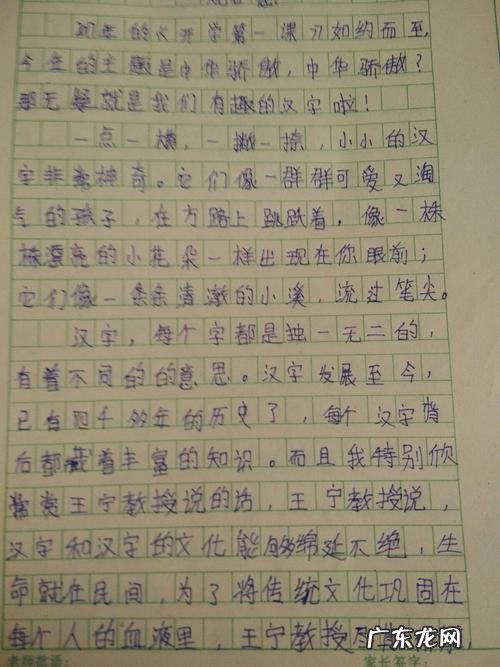 历年的《开学第一课》如约而至,
今年的主题是中华骄傲,中华骄傲?
那无疑就是我们有趣的汉字啦!
一点一横,一撇一捺,小小的汉
字非常神奇。它们像一群群可爱又淘
气的孩子,在方路上跳跃着,像一株
株漂亮的小花朵一样出现在你眼前;
它们像一条条清澈的小溪,流过笔尖。
汉字,每个字都是独一无二的,
有着不同的的意思。汉字发展至今,
已有四千多年的历史了,每个汉字背
后都藏着丰富的知识。而且我特别欣
赏王宁教授说的话,王宁教授说,
汉字和汉字的文化能够绵延不绝,生
命就在民间,为了将传统文化巩固在
每个人的血液里,王宁教授
广东龙网
老师批语:
家长签字: